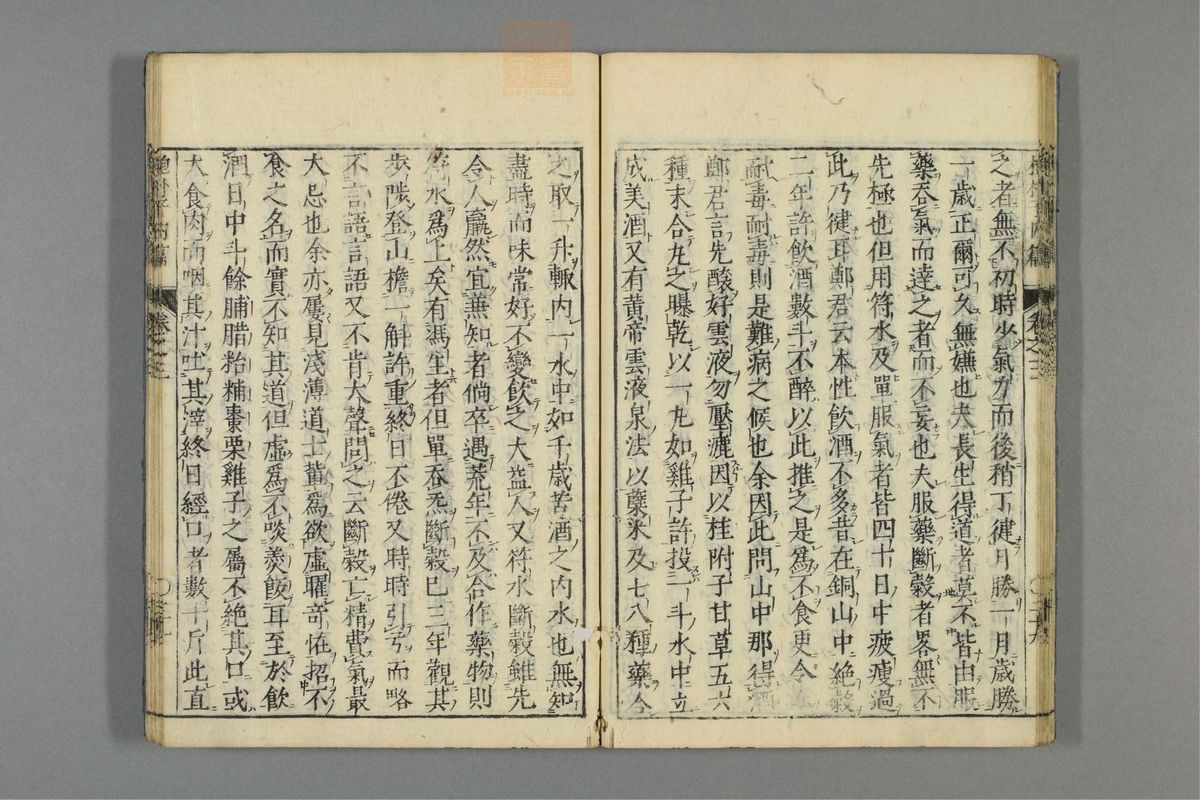 之者無不初時少氣力而後稍丁健月勝一月歲勝
一歲正爾可久無嫌也夫長生得道者莫不皆由服
藥吞氣而達之者而不妄也夫服藥斷穀者畧無不
先極也但用符水及單服氣者皆四十日中疲瘦過
此乃健耳鄭君云本性飲酒不多昔在銅山中絶穀
二年許飲酒數斗不醉以此推之是爲不食更令
耐毒耐毒則是難病之候也余因此問山中那得酒
鄭君言先釀好雲液勿壓漉因以桂附子甘草五六
種末合丸之曝乾以一丸如雞子許投一斗水中立
成美酒又有黄帝雲液泉法以蘗米及七八種藥合
之取一升輙内一水中如千歲苦酒之内水也無知
盡時而味常好不變飲之大益人又符水斷穀雖先
令人羸然宜兼知者倘卒遇荒年不及合作藥物則
符水爲上矣有馮生者但單吞炁斷穀已三年觀其
步陟登山擔一斛許重終日不倦又時時引弓而略
不言語言語又不肯大聲問之云斷穀亡精費氣最
大忌也余亦屢見淺薄道士輩爲欲虛曜奇恠招不
食之名而實不知其道但虛爲不啖羹飯耳至於飲
酒日中斗餘脯腊粭糒棗栗雞子之屬不絶其口或
大食肉而咽其汁吐其滓終日經口者數十斤此直
卷之三